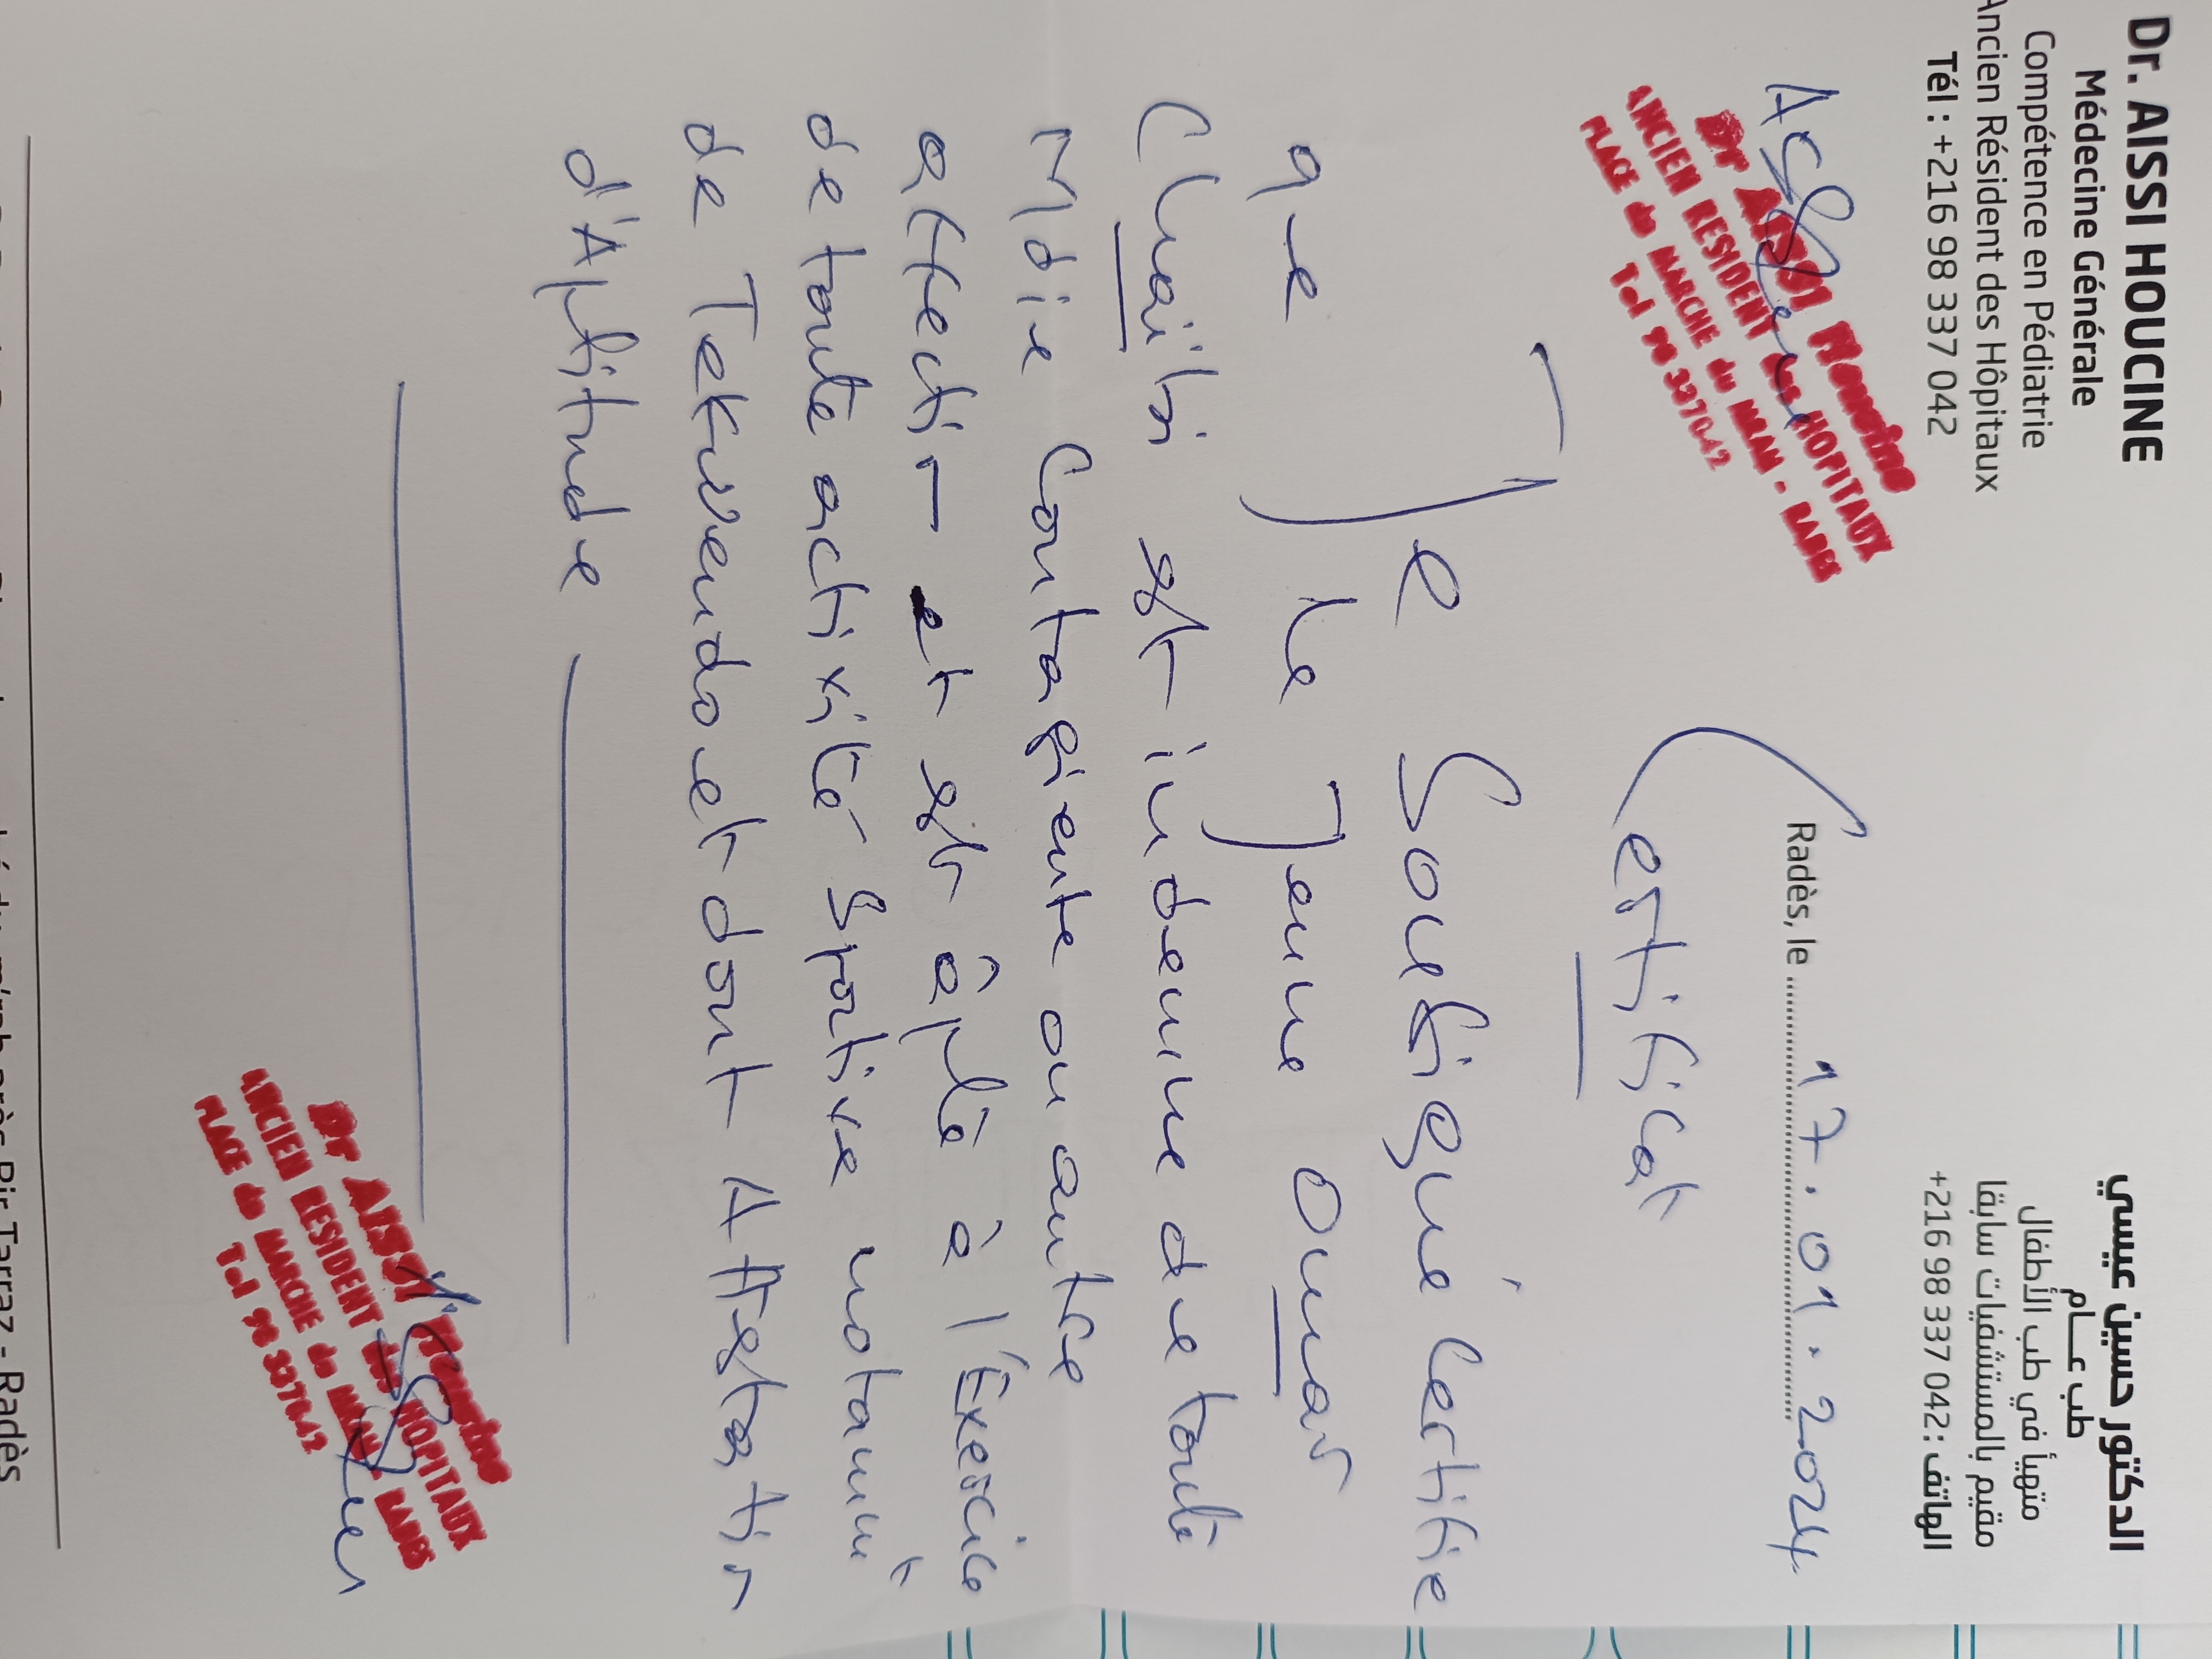 Dr. AISSI HOUCINE
Médecine Générale
Compétence en Pédiatrie
Ancien Résident des Hôpitaux
Tél : +216 98 337 042
الدكتور حسين عيسي
طب عــام
متهيأ في طب الأطفال
مقيم بالمستشفيات سابقا
الهاتف : 042 337 98 216+
Radès, le 17.01.2024
Dr AISSI Houcine
ANCIEN RESIDENT des HOPITAUX
PLACE du MARCHE du MAXI - RADES
Tel 98 337042
Certificat
Je Soussigné Certifie
que le Jeune Oumar
Chaïbi est indemne de toute
Mdie Contagieuse ou autre
affection et est apte à l'Exercice
de toute activité Sportive notamt
de Tekwendo et dont Attestation
d'Aptitude
Dr AISSI Houcine
ANCIEN RESIDENT des HOPITAUX
PLACE du MARCHE du RADES
Tel 98 337042
Bir Tarraz - Radès